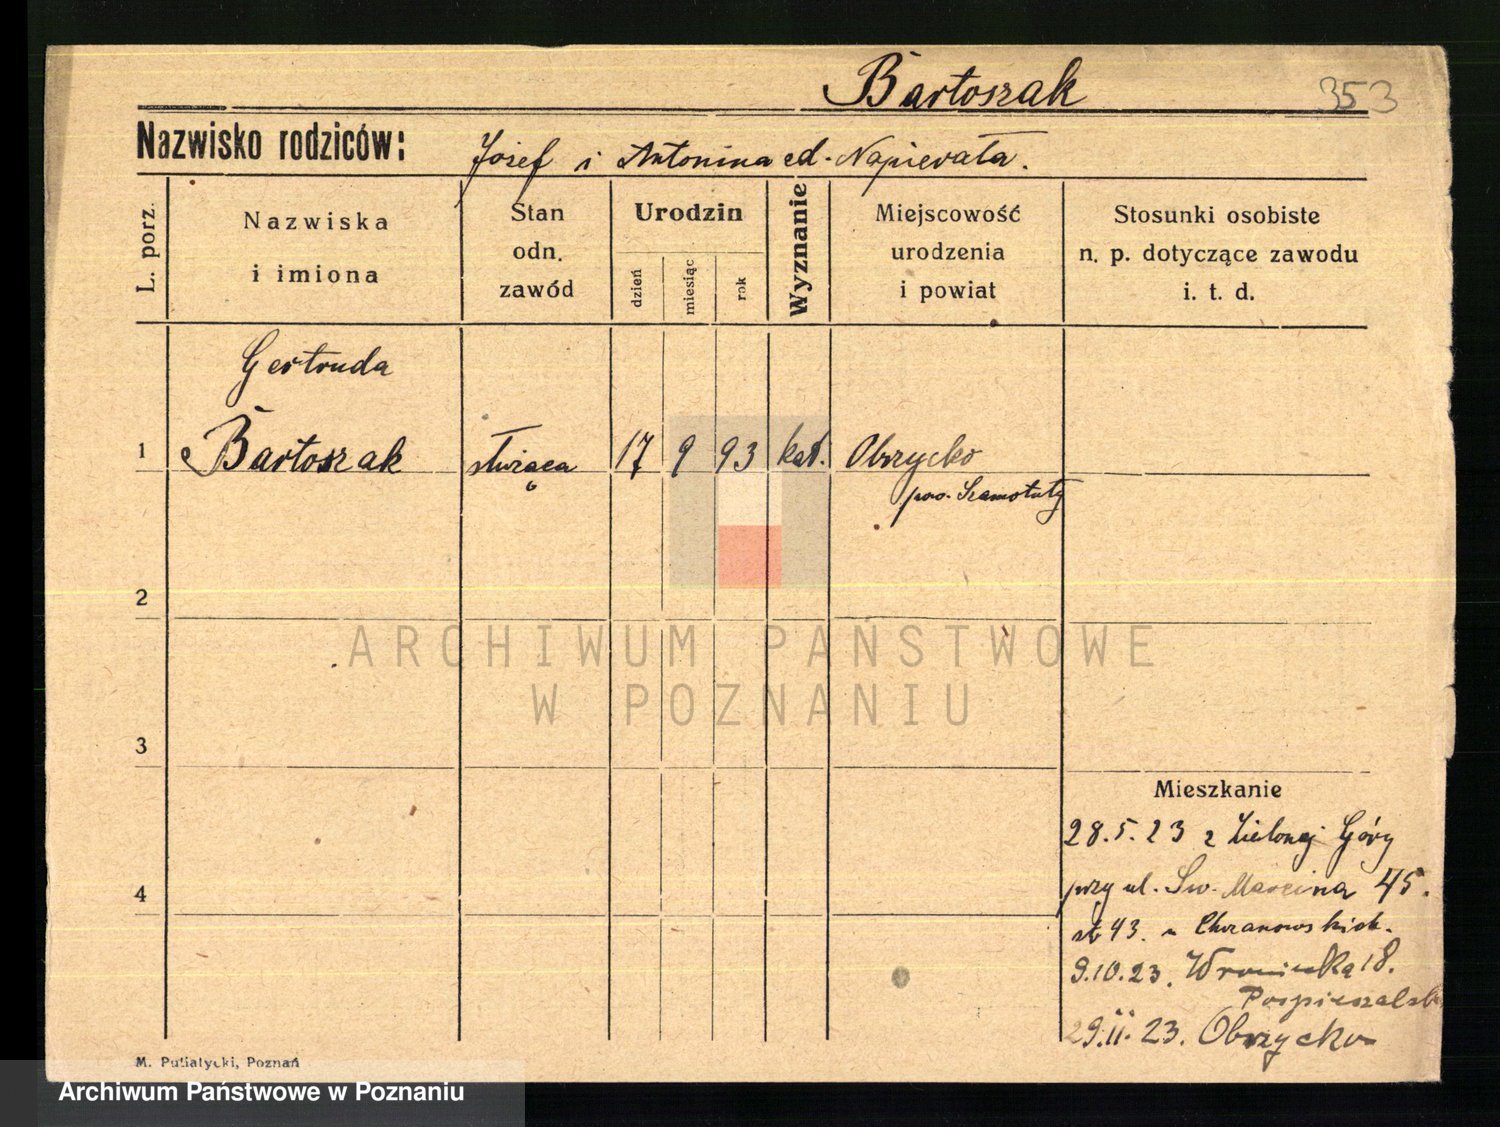 Bartoszak
353
Nazwisko rodziców: Józef i Antonina ed. Napierała.
L. porz.
Nazwiska
i imiona
Stan
odn.
zawód
Urodzin
dzień
miesiąc
rok
Wyznanie
Miejscowość
urodzenia
i powiat
Stosunki osobiste
n. p. dotyczące zawodu
i. t. d.
Gertruda
1 Bartoszak służąca 17 9 93 kat. Obrzycko
pow. Szamotuły
2
3
4
ARCHIWUM PAŃSTWOWE
W POZNANIU
Mieszkanie
28.5.23 z Zielonej Góry
przy ul. Św. Marcina 45.
43. u Chrzanowskich.
9.10.23. Wroniecka 18.
Pospieszalsk
29.11.23. Obrzycko
M. Putiatycki, Poznań
Archiwum Państwowe w Poznaniu